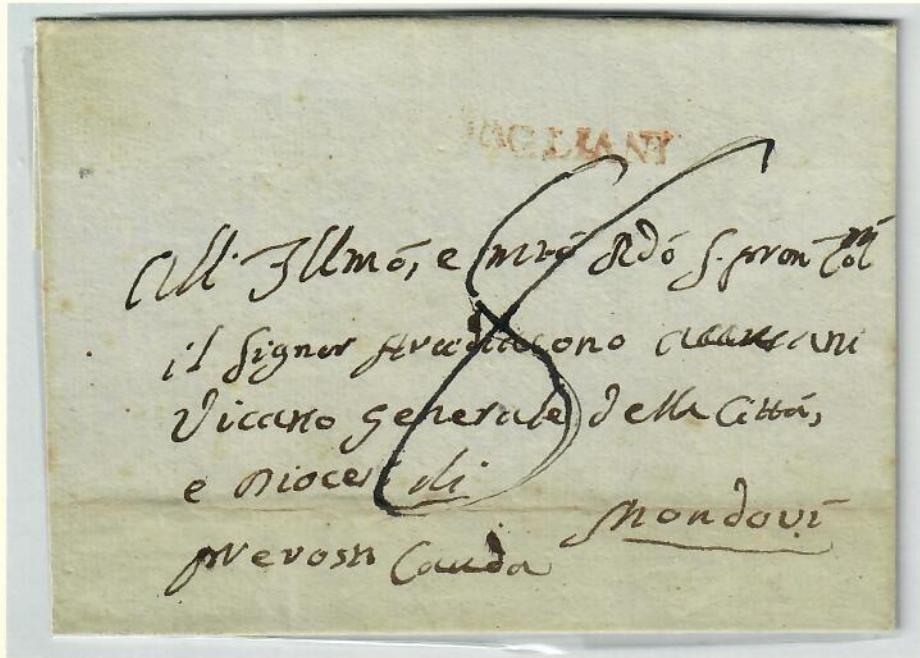 OGLIANI
8
All' Illmo, e Mto Rdo S. Pron Col
il Signor Arcidiacono
Vicario Generale della Città,
e Diocesi di
Mondovì
Cauda